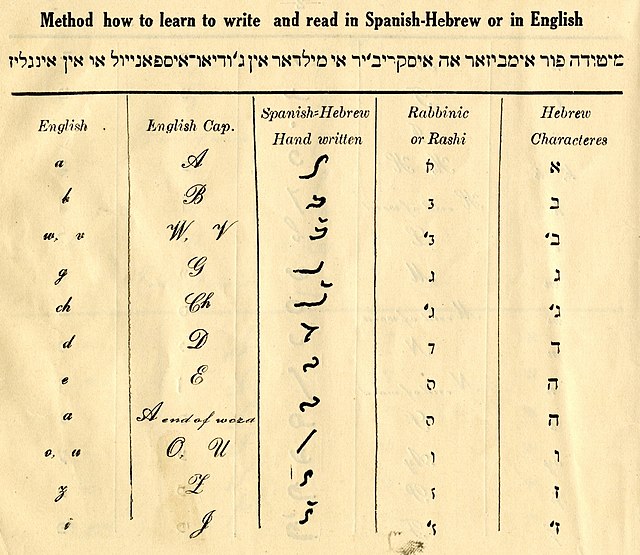 Method how to learn to write and read in Spanish-Hebrew or in English
מיטודה פור אימביזאר אה איסקריב'יר אי מילדאר אין ג'ודיאו־איספאנייול או אין אינגליז
English English Cap. Spanish=Hebrew Rabbinic Hebrew
Hand written or Rashi Characteres
a A א א
b B ב ב
w, v W, V ב' ב'
g G ג ג
ch Ch ג' ג'
d D ד ד
e E ה ה
a A end of word ה ה
o, u O, U ו ו
z Z ז ז
i J ז' ז'